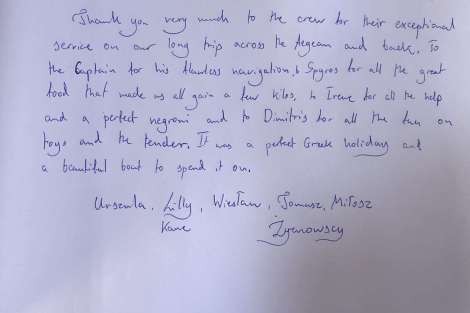 Thank you very much to the crew for their exceptional
service on our long trip across the Aegean and back. To
the Captain for his flawless navigation, to Spyros for all the great
food that made us all gain a few kilos, to Irene for all the help
and a perfect negroni and to Dimitris for all the fun on
toys and the tender. It was a perfect Greek holiday and
a beautiful boat to spend it on.
Urszula, Lilly, Wiesław, Tomasz, Miłosz
Kane